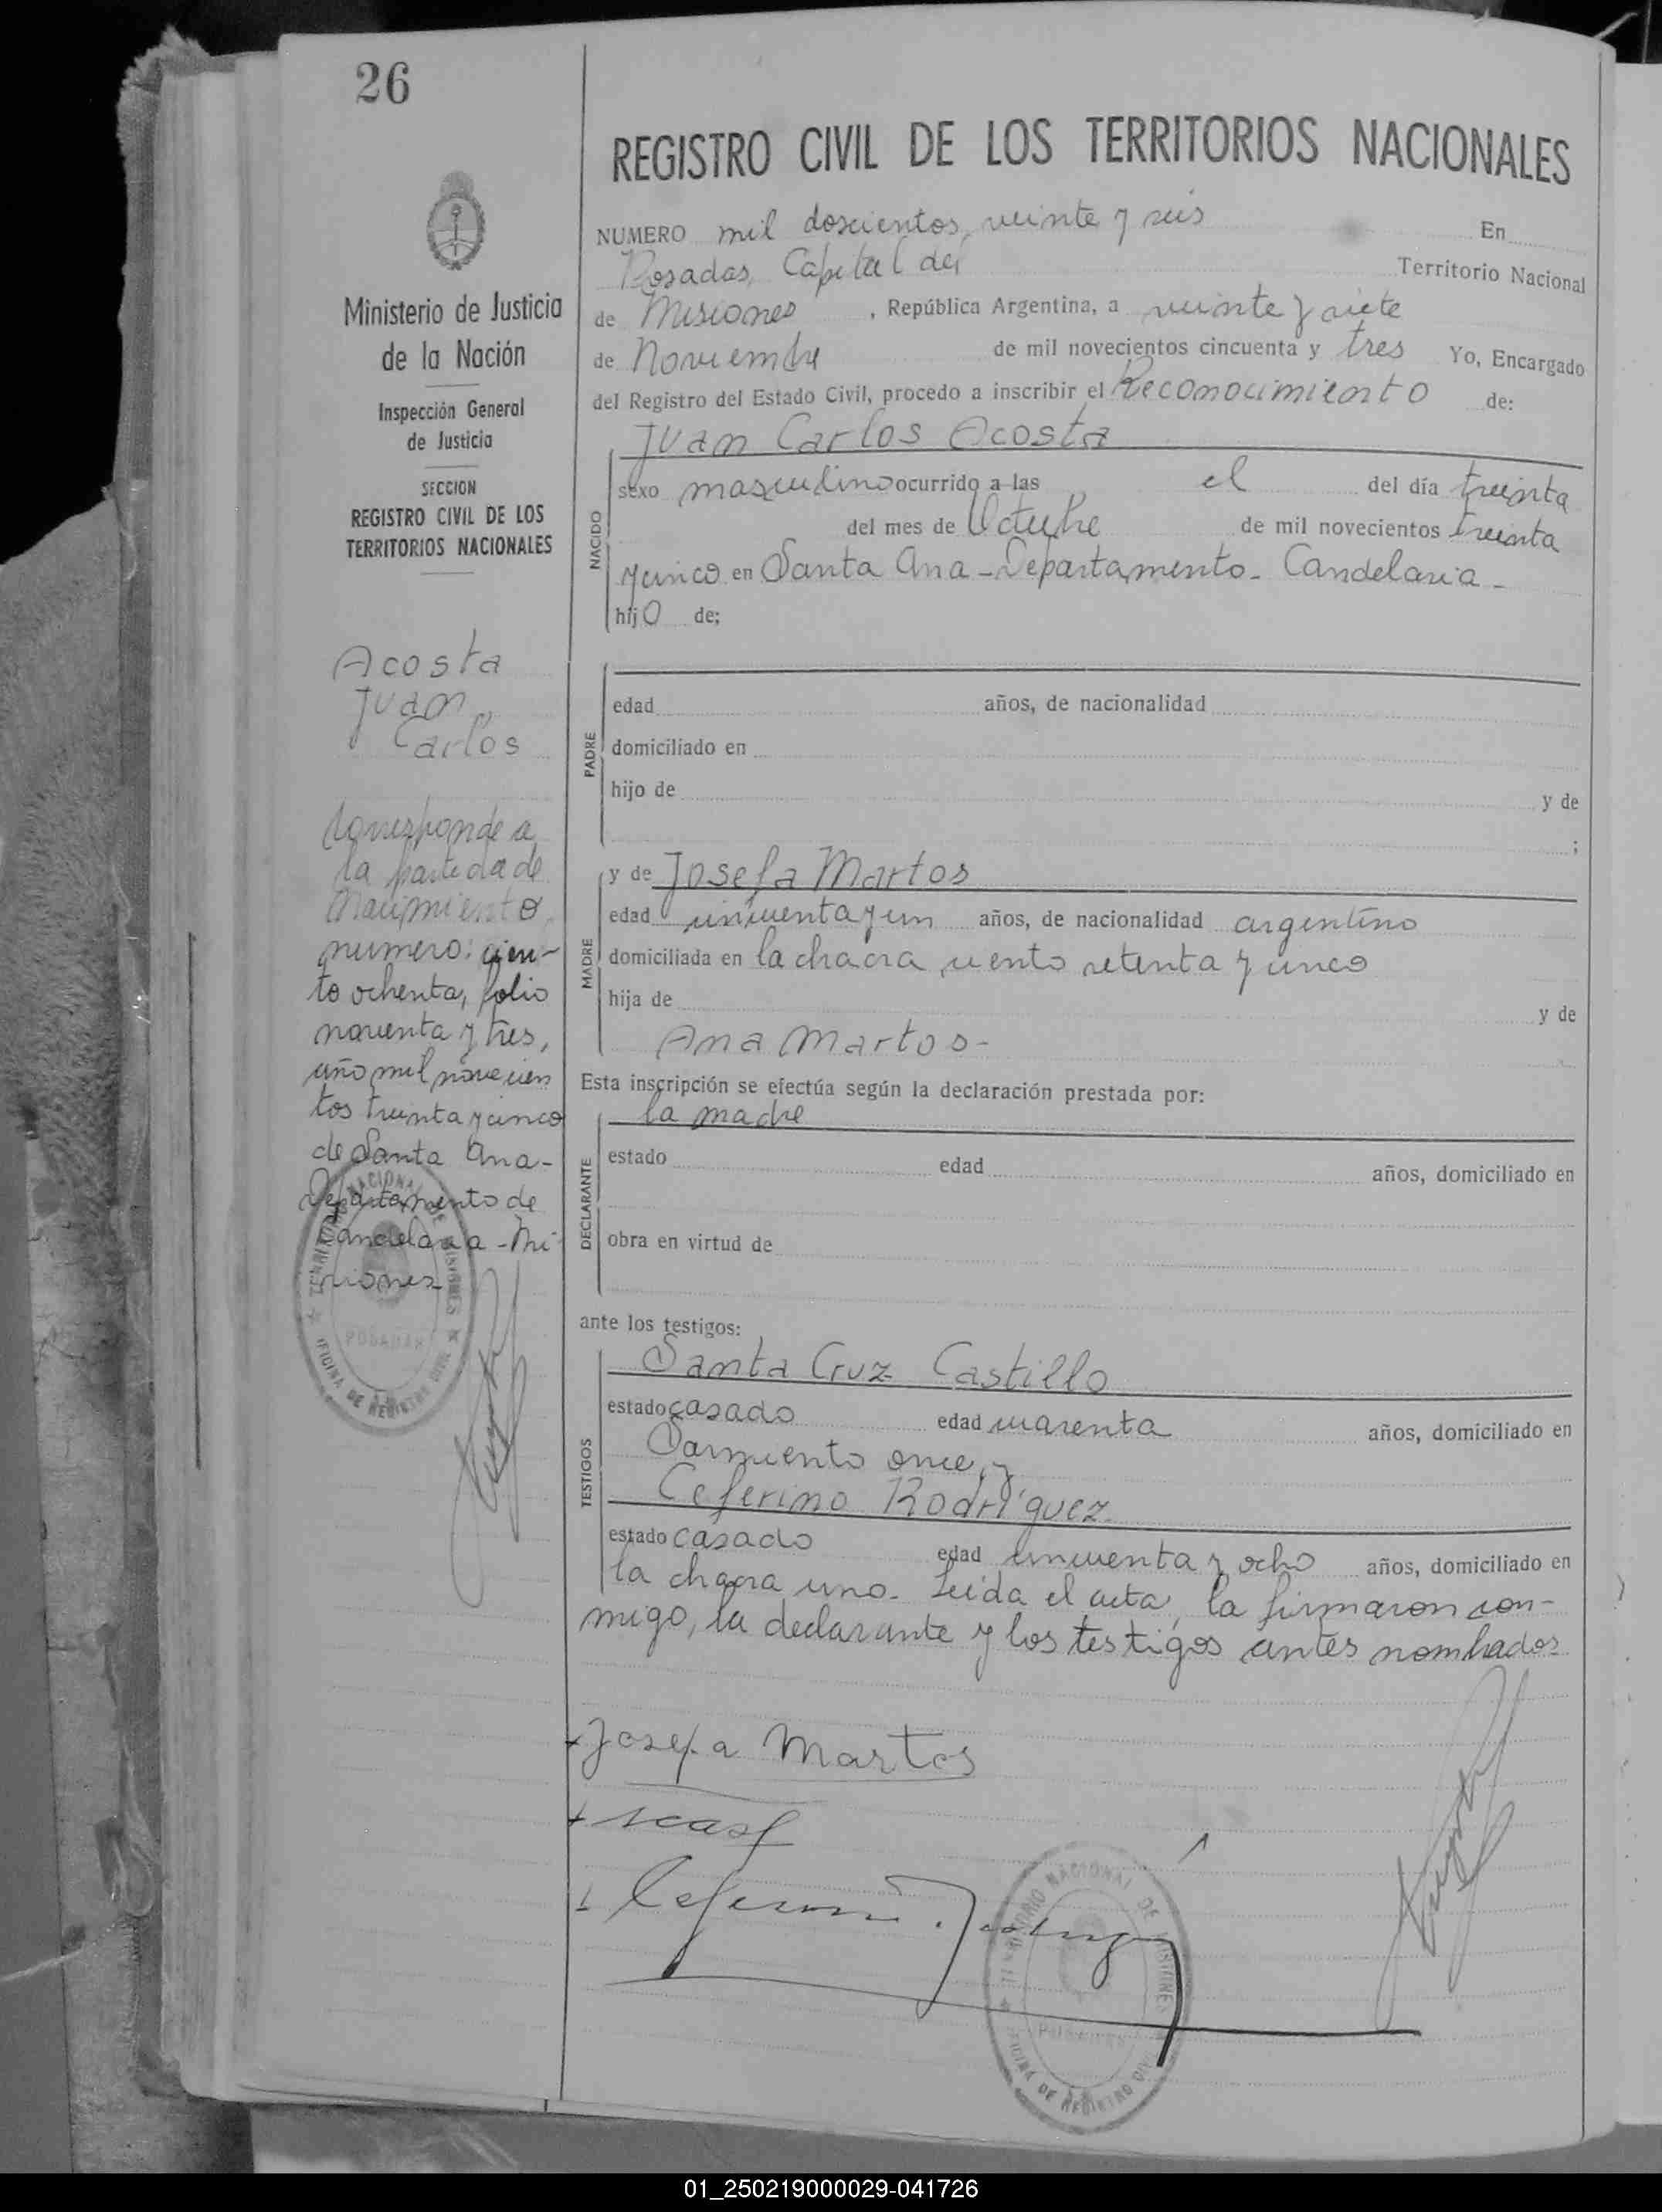 26
REGISTRO CIVIL DE LOS TERRITORIOS NACIONALES
NUMERO mil doscientos, veinte y seis En
Posadas, Capital del Territorio Nacional
de Misiones , República Argentina, a veinte y siete
de Noviembre de mil novecientos cincuenta y tres Yo, Encargado
del Registro del Estado Civil, procedo a inscribir el Reconocimiento de:
Juan Carlos Acosta
NACIDO
sexo masculino ocurrido a las el del día treinta
del mes de Octubre de mil novecientos treinta
y cinco en Santa Ana - Departamento - Candelaria -
hijo de;
PADRE
edad años, de nacionalidad
domiciliado en
hijo de y de
;
MADRE
y de Josefa Martos
edad cincuenta y un años, de nacionalidad argentino
domiciliada en la chacra ciento setenta y cinco
hija de y de
Ana Martos -
Esta inscripción se efectúa según la declaración prestada por:
la madre
DECLARANTE
estado edad años, domiciliado en
obra en virtud de
ante los testigos:
TESTIGOS
Santa Cruz Castillo
estado casado edad cuarenta años, domiciliado en
Sarmiento once, y
Ceferino Rodríguez
estado casado edad cincuenta y ocho años, domiciliado en
la chacra uno. Leída el acta, la firmaron con-
migo, la declarante y los testigos antes nombrados
Josefa Martos
Ministerio de Justicia
de la Nación
Inspección General
de Justicia
SECCION
REGISTRO CIVIL DE LOS
TERRITORIOS NACIONALES
Acosta
Juan
Carlos
Corresponde a
la partida de
Nacimiento
numero: cien-
to ochenta, folio
noventa y tres,
año mil novecien
tos treinta y cinco
de Santa Ana -
Departamento de
Candelaria - Mi
siones
TERRITORIO NACIONAL DE MISIONES
POSADAS
OFICINA DE REGISTRO CIVIL
TERRITORIO NACIONAL DE MISIONES
POSADAS
OFICINA DE REGISTRO CIVIL
01_250219000029-041726